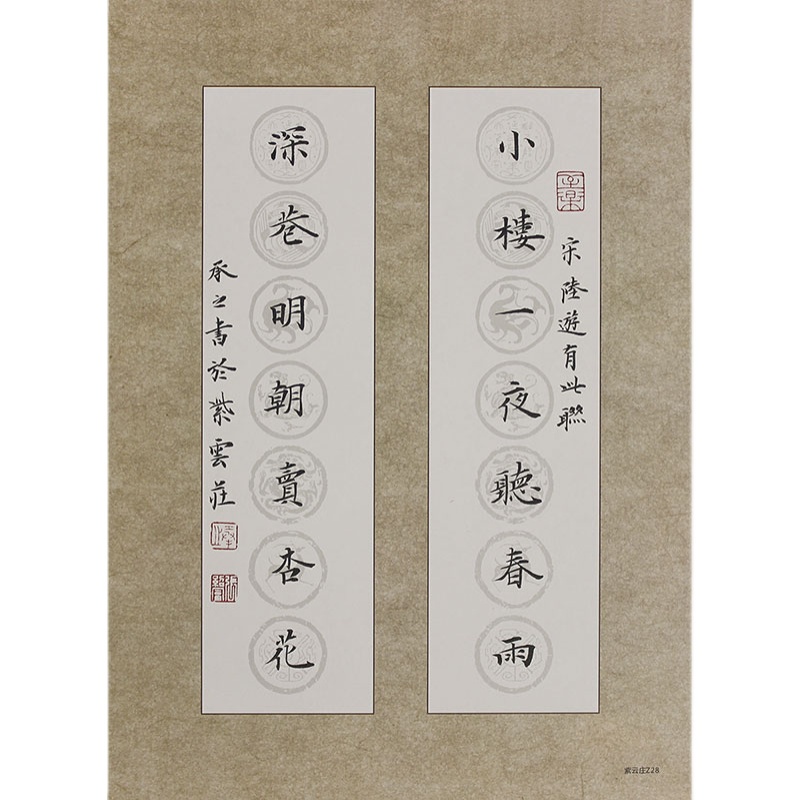 宋陸遊有此聯
小樓一夜聽春雨
深巷明朝賣杏花
承之書於紫雲莊
紫云庄Z28